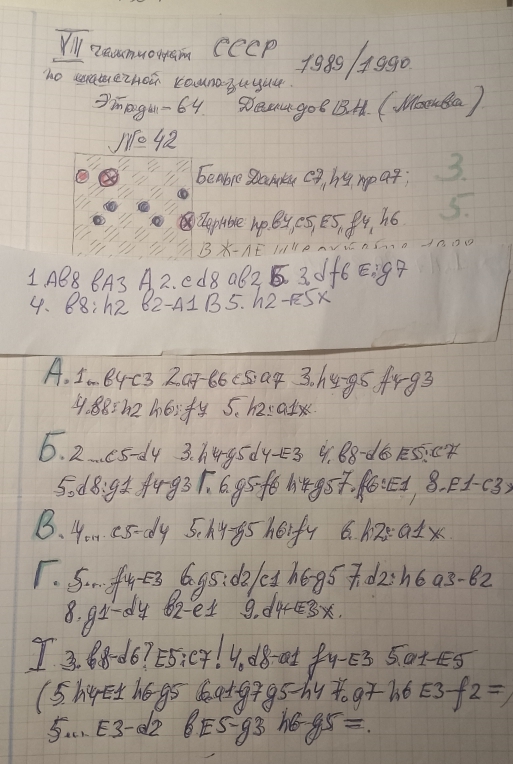 VII Чемпионат СССР 1989/1990.
по шашечной композиции.
Этюды-64. Демидов В.Н. (Москва)
№ 42
Белые Дамки c7, h4, пр a7; 3.
Чёрные пр. b4, c5, E5, f4, h6 5.
1. AB8 BA3 А, 2. cd8 ab2 Б 3. df6 E:g7
4. B8:h2 B2-A1 В 5. h2-E5x
А. 1... B4-c3 2. a7-B6 c5:a7 3. h4-g5 f4-g3
4. B8:h2 h6:f4 5. h2:a1x.
Б. 2...c5-d4 3. h4-g5 d4-E3 4. B8-d6 E5:c7
5. d8:g1 f4-g3 Г. 6. g5-f6 h4-g5 7. f6:E1, 8. E1-c3x
В. 4... c5-d4 5. h4-g5 h6:f4 6. h2:a1x.
Г. 5... f4-E3 6. g5:d2/c1 h6-g5 7. d2:h6 a3-B2
8. g1-d4 B2-c1 9. d4-E3x.
I 3. B8-d6? E5:c7! 4. d8-a1 f4-E3 5. a1-E5
(5. h4E1 h6-g5 6. a1-g7 g5-h4 7. g7-h6 E3-f2=)
5... E3-d2 6. E5-g3 h6-g5=.